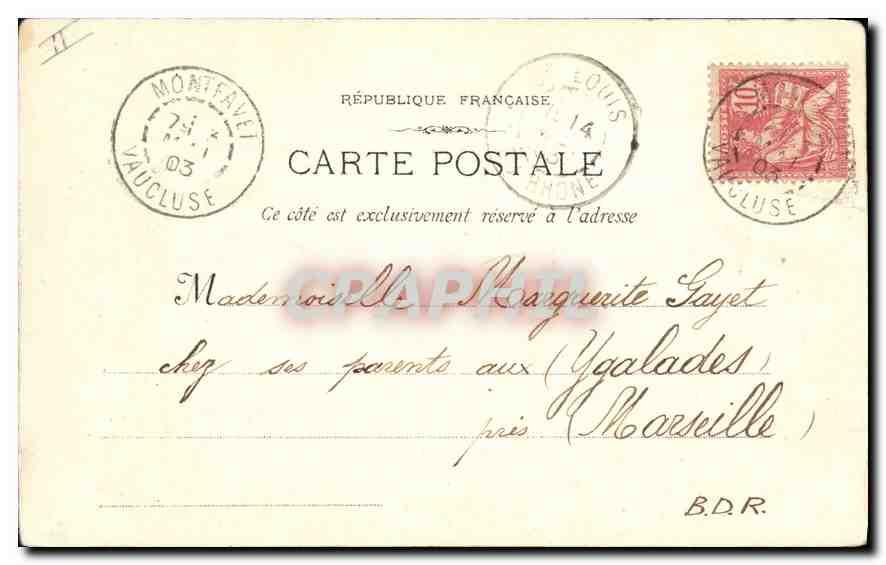 MONTFAVET
03
VAUCLUSE
RÉPUBLIQUE FRANÇAISE
CARTE POSTALE
Ce côté est exclusivement réservé à l'adresse
LOUIS
14
RHONE
10
03
VAUCLUSE
CPAPHIL
Mademoiselle Marguerite Gayet
chez ses parents aux (Ygalades)
près (Marseille)
B.D.R.